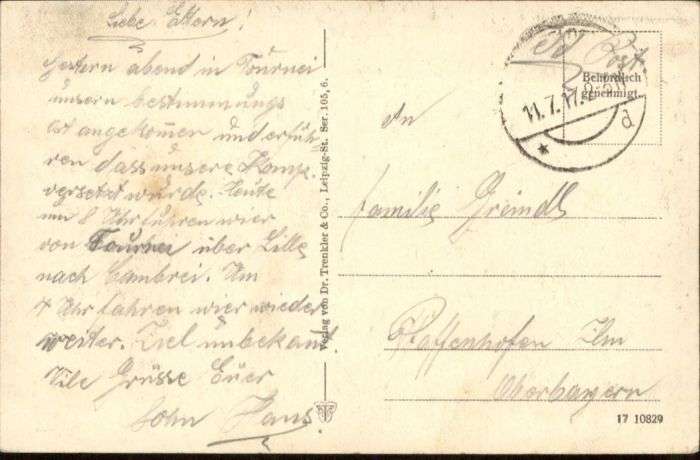 Liebe Eltern!
gestern abend in Tournei
unsern bestimmungs
ort angekommen und erfuh-
ren dass unsere Komp.
versetzt wurde. Heute
um 8 Uhr fuhren wier
von Tournei über Lille
nach Cambrei. Um
4 Uhr fahren wier wieder
weiter. Ziel unbekant.
Vile Grüsse Euer
Sohn Hans.
Verlag von Dr. Trenkler & Co., Leipzig-St. Ser. 105, 6.
Fd Post
Behördlich
genehmigt.
11.7.17.
d
An
Familie Greindl
Pfaffenhofen Ilm
Oberbayern
17 10829